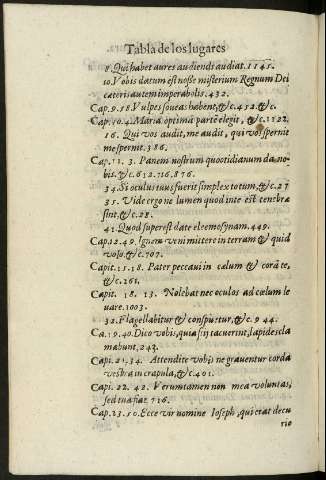 Tabla de los lugares
8. Qui habet aures audiends audiat. 1145.
10. Vobis datum est nosse misterium Regnum Dei
cæteris autem in parabolis. 432.
Cap. 9. 58. Vulpes foueas habent, &c. 452. &c.
Cap. 10. 4. Maria optimā partē elegit, &c. 1122.
16. Qui vos audit, me audit, qui vos spernit
me spernit. 386.
Cap. 11. 3. Panem nostrum quotidianum da no-
bis. &c. 612. 716. 876.
34. Si oculus tuus fuerit simplex totum, &c. 27
35. Vide ergo ne lumen quod in te est tenebræ
sint, &c. 28.
41. Quod superest date eleemosynam. 449.
Cap. 12. 49. Ignem veni mittere in terram & quid
volo. &c. 707.
Capit. 15. 18. Pater peccaui in cælum & corā te,
&c. 261.
Capit. 18. 13. Nolebat nec oculos ad cœlum le
uare. 1003.
32. Flagellabitur & conspuetur, & c 9 44.
Ca. 19. 40. Dico vobis, quia si hi tacuerint, lapides cla
mabunt. 243.
Capi. 21. 34. Attendite vobis ne grauentur corda
vestra in crapula, & c. 401.
Capi. 22. 42. Verumtamen non mea voluntas,
sed tua fiat 716.
Cap. 23. 50. Ecce vir nomine Ioseph, qui erat decu
rio